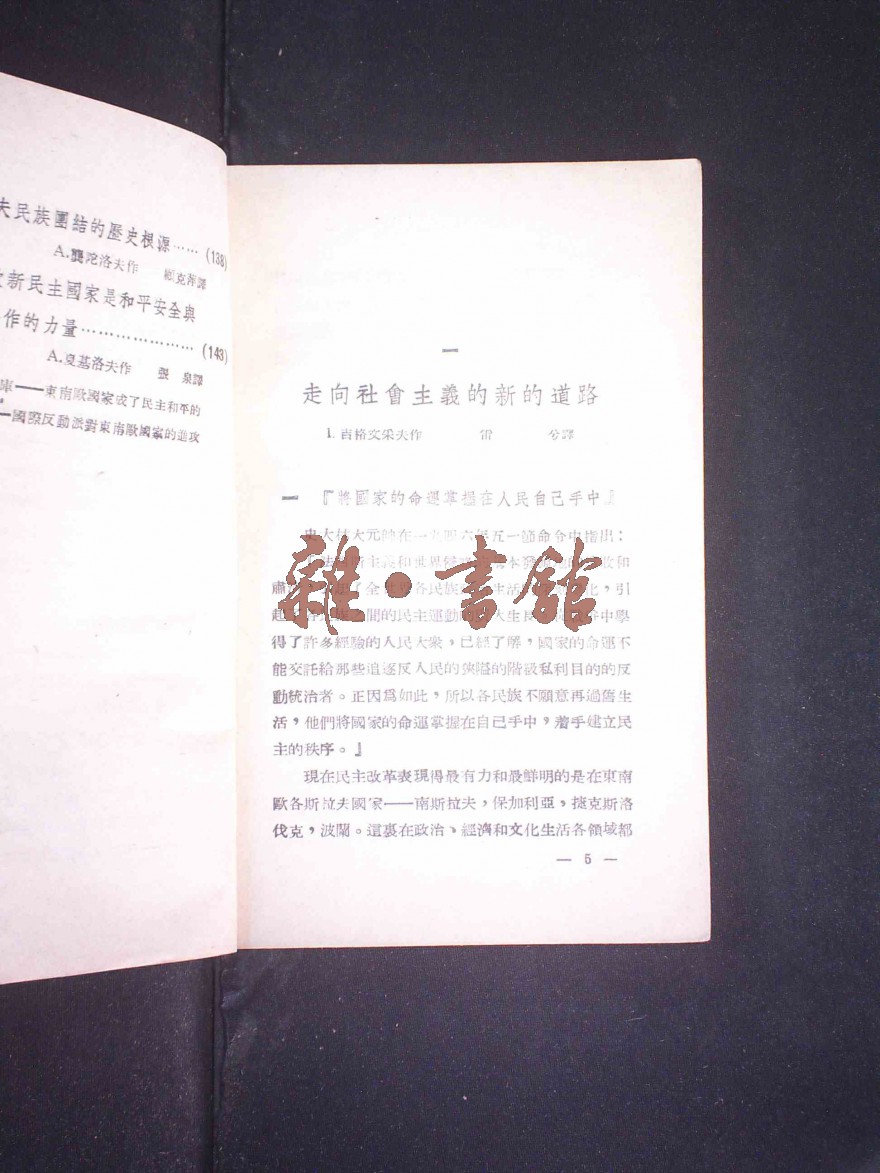 夫民族團結的歷史根源……(138)
A.龔陀洛夫作 克萍譯
新民主國家是和平安全與
作的力量…………………(143)
A.夏基洛夫作 張 泉譯
庫——東南歐國家成了民主和平的
—國際反動派對東南歐國家的進攻
一
走向社會主義的新的道路
I.吉格文采夫作 雷 兮譯
一 『將國家的命運掌握在人民自己手中』
史大林大元帥在一九四六年五一節命令中指出：
法西斯主義和世界侵
肅 了全世界各民族 生活 ，引
起 族之間的民主運動的 大生 中學
得了許多經驗的人民大衆，已經了解，國家的命運不
能交託給那些追逐反人民的狹隘的階級私利目的的反
動統治者。正因爲如此，所以各民族不願意再過舊生
活，他們將國家的命運掌握在自己手中，着手建立民
主的秩序。』
現在民主改革表現得最有力和最鮮明的是在東南
歐各斯拉夫國家——南斯拉夫，保加利亞，捷克斯洛
伐克，波蘭。這裏在政治、經濟和文化生活各領域都
— 5 —
雜·書館